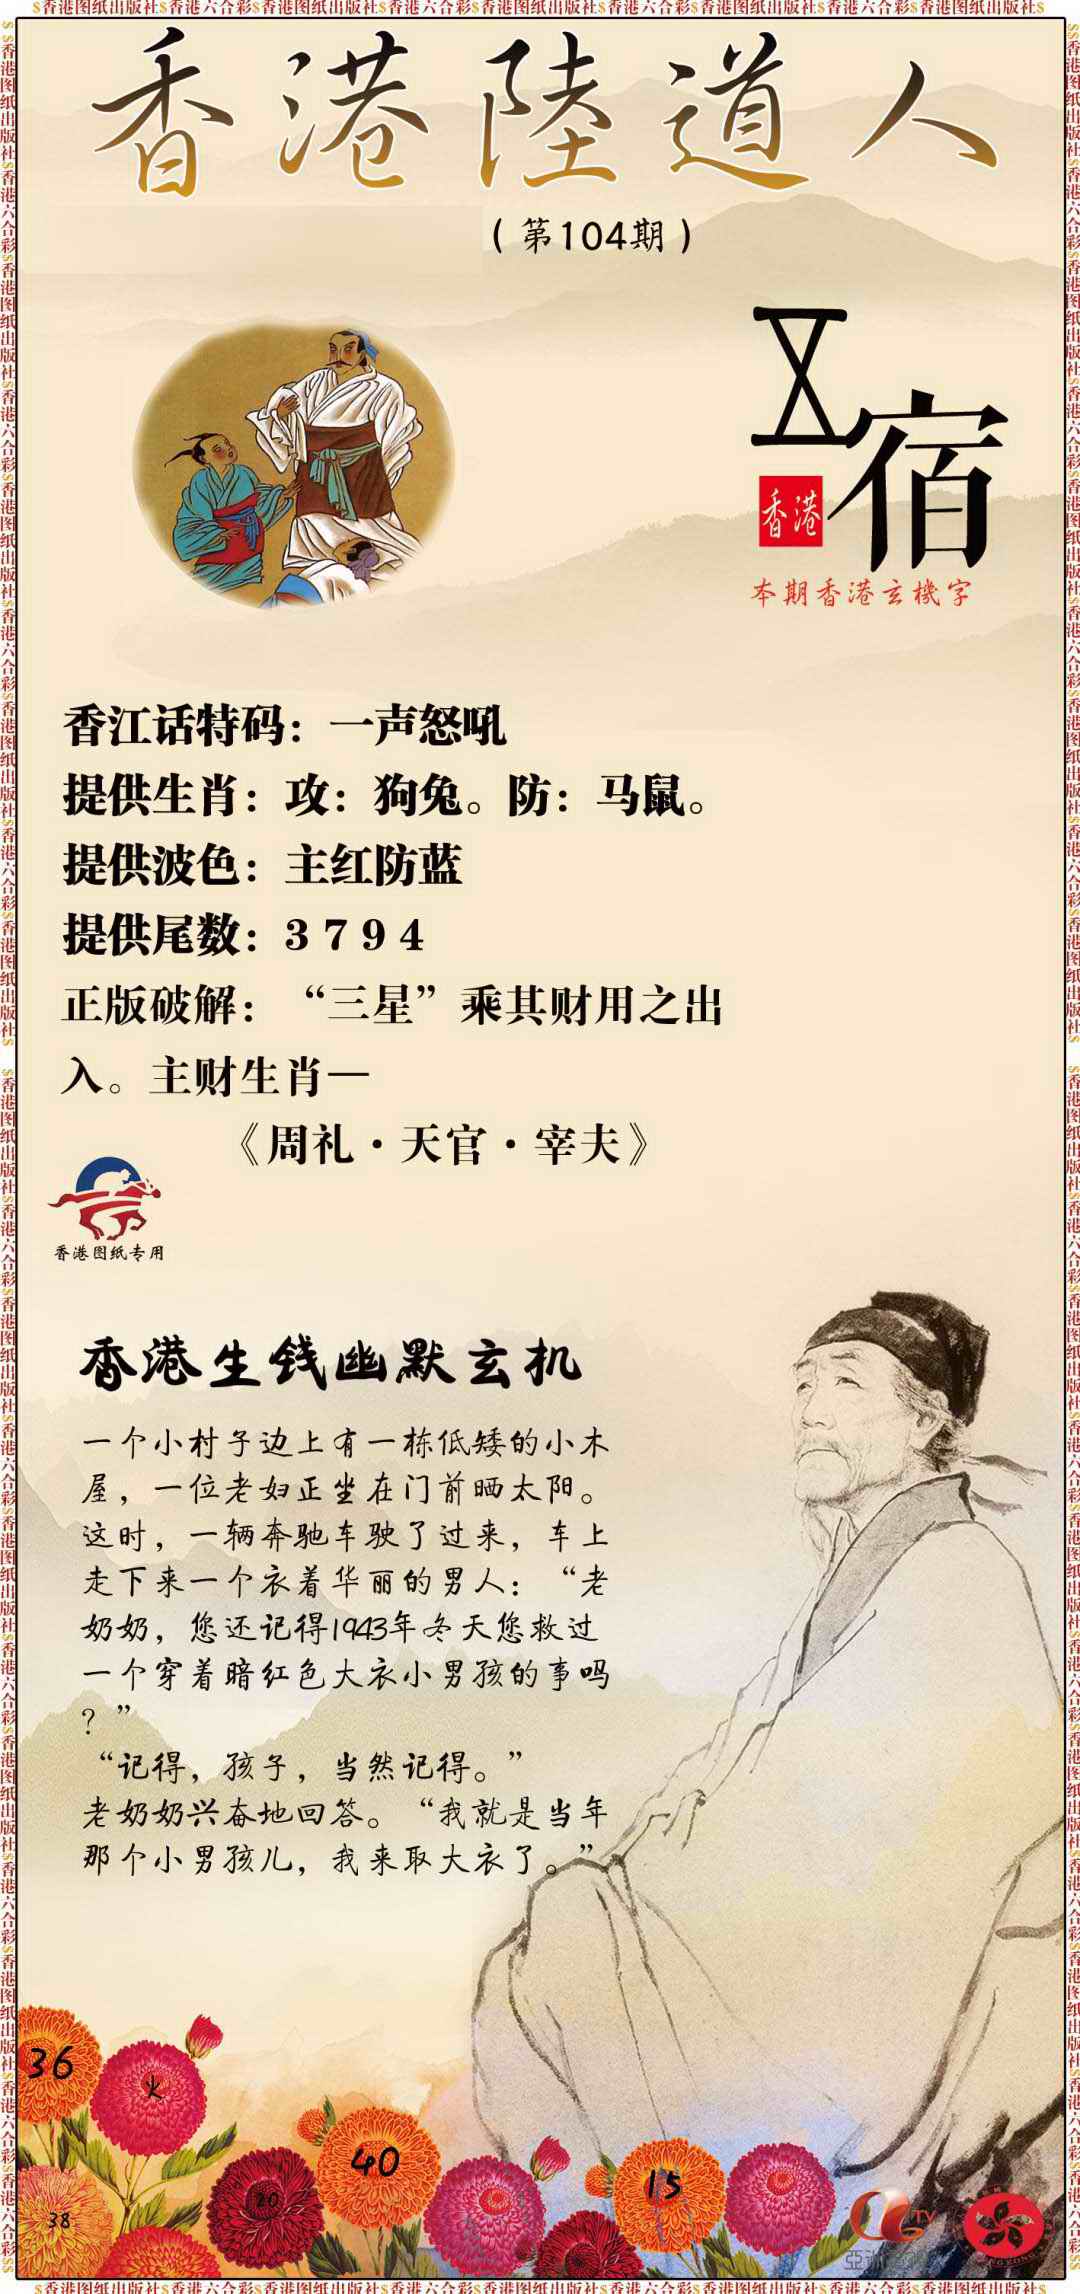 $香港图纸出版社$香港六合彩$香港图纸出版社$香港六合彩$香港图纸出版社$香港六合彩$香港图纸出版社$香港六合彩$香港图纸出版社$
香港陸道人
（第104期）
宿
香港
本期香港玄機字
香江话特码：一声怒吼
提供生肖：攻：狗兔。防：马鼠。
提供波色：主红防蓝
提供尾数：3 7 9 4
正版破解：“三星”乘其财用之出
入。主财生肖—
《周礼·天官·宰夫》
香港图纸专用
香港生钱幽默玄机
一个小村子边上有一栋低矮的小木
屋，一位老妇正坐在门前晒太阳。
这时，一辆奔驰车驶了过来，车上
走下来一个衣着华丽的男人：“老
奶奶，您还记得1943年冬天您救过
一个穿着暗红色大衣小男孩的事吗
？”
“记得，孩子，当然记得。”
老奶奶兴奋地回答。“我就是当年
那个小男孩儿，我来取大衣了。”
36
火
40
15
20
38
TV